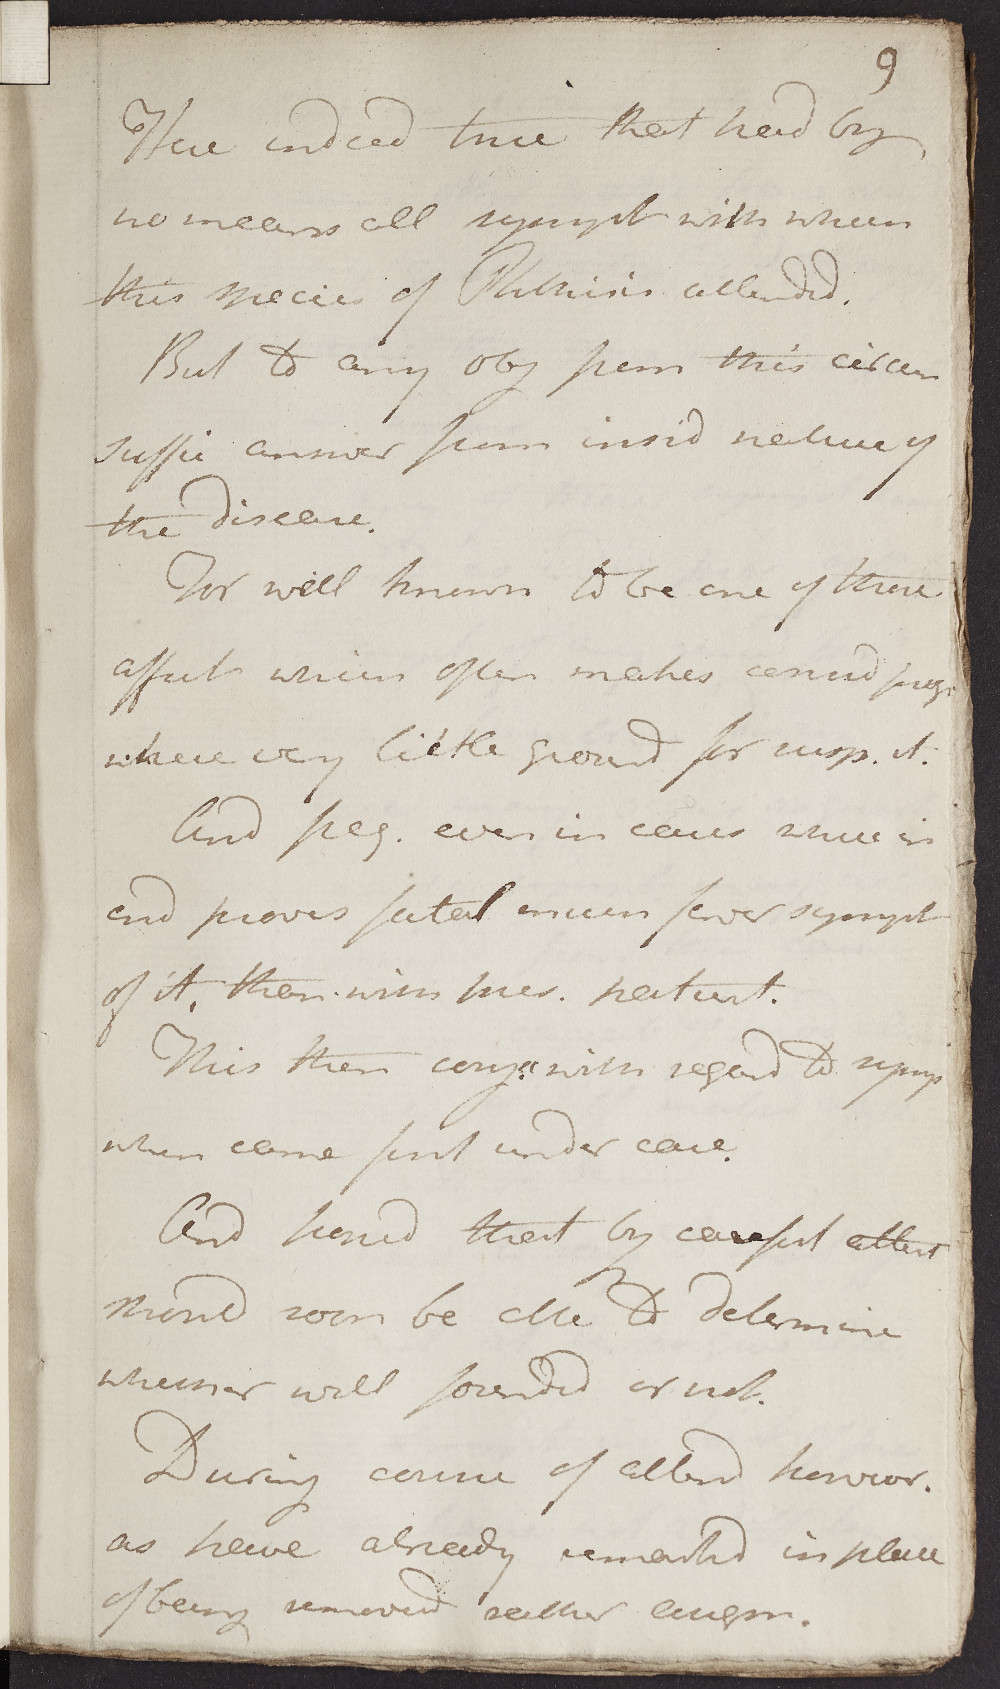 9
Here indeed true that had by
no means all sympt with which
this species of Phthisis attended.
But to any obj from this circum
suffic answer from insid nature of
the disease.
For well known to be one of those
affect which often makes consid progr
where very little ground for susp. it.
And freq. even in cases where in
end proves fatal much fewer sympt
of it, than with pres. patient.
This then conj. with regard to symp
when came first under care.
And hoped that by careful attent
should soon be able to determine
whether well founded or not.
During course of attend however.
as have already remarked in place
of being removed rather augm.